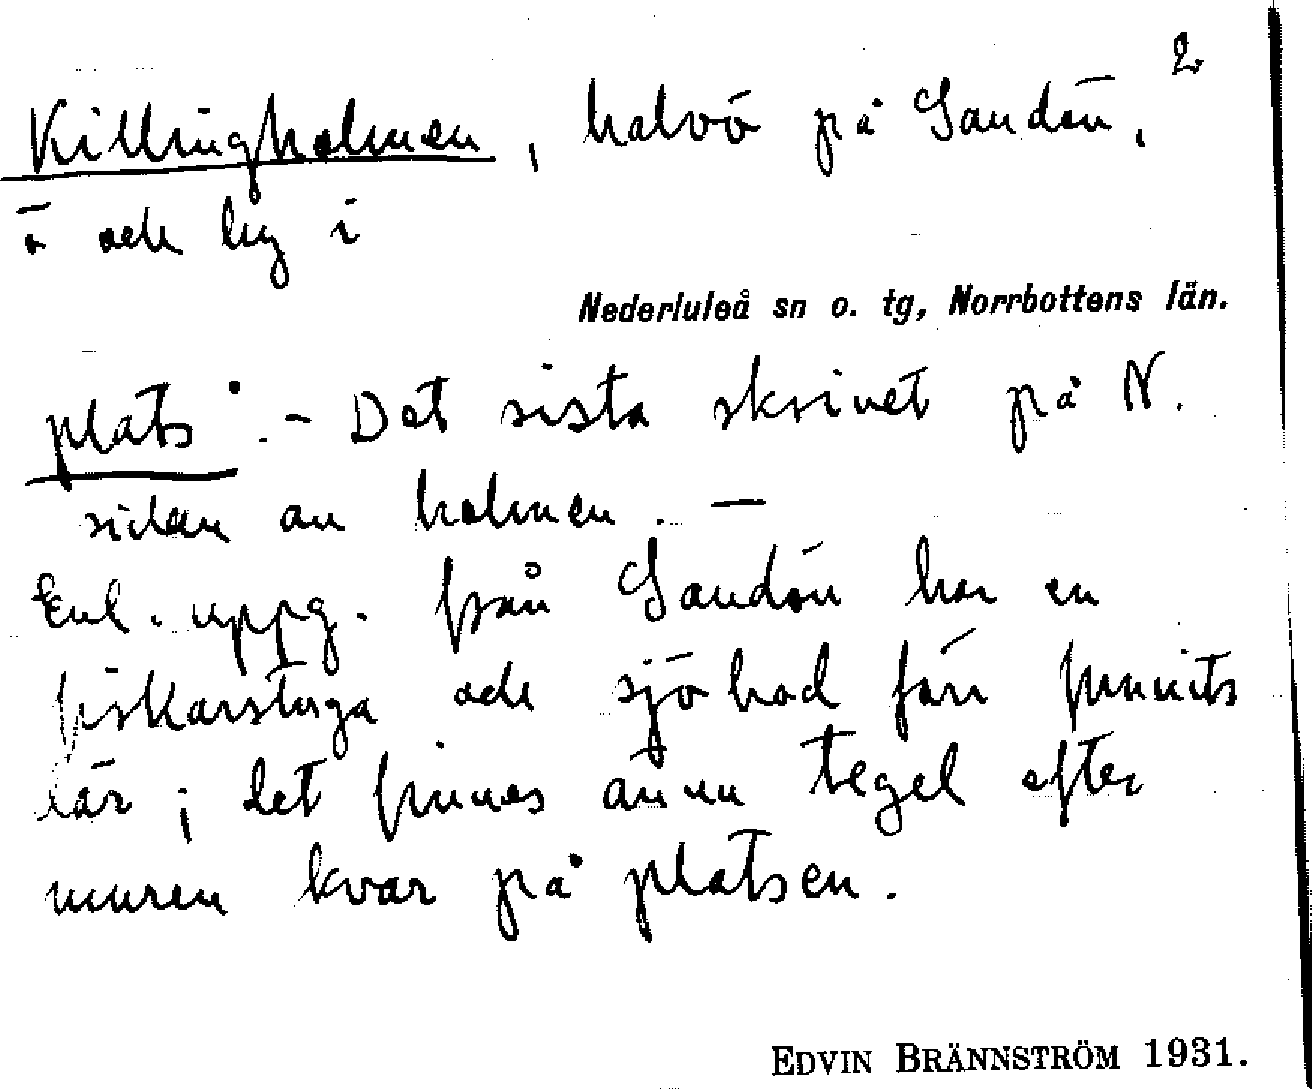 2
Killingholmen, halvö på Sandön,
ö och lg i
Nederluleå sn o. tg, Norrbottens län.
plats". - Det sista skrivet på N.
sidan av holmen. —
Enl. uppg. från Sandön har en
fiskarstuga och sjöbod förr funnits
där; det finnes ännu tegel efter
muren kvar på platsen.
EDVIN BRÄNNSTRÖM 1931.